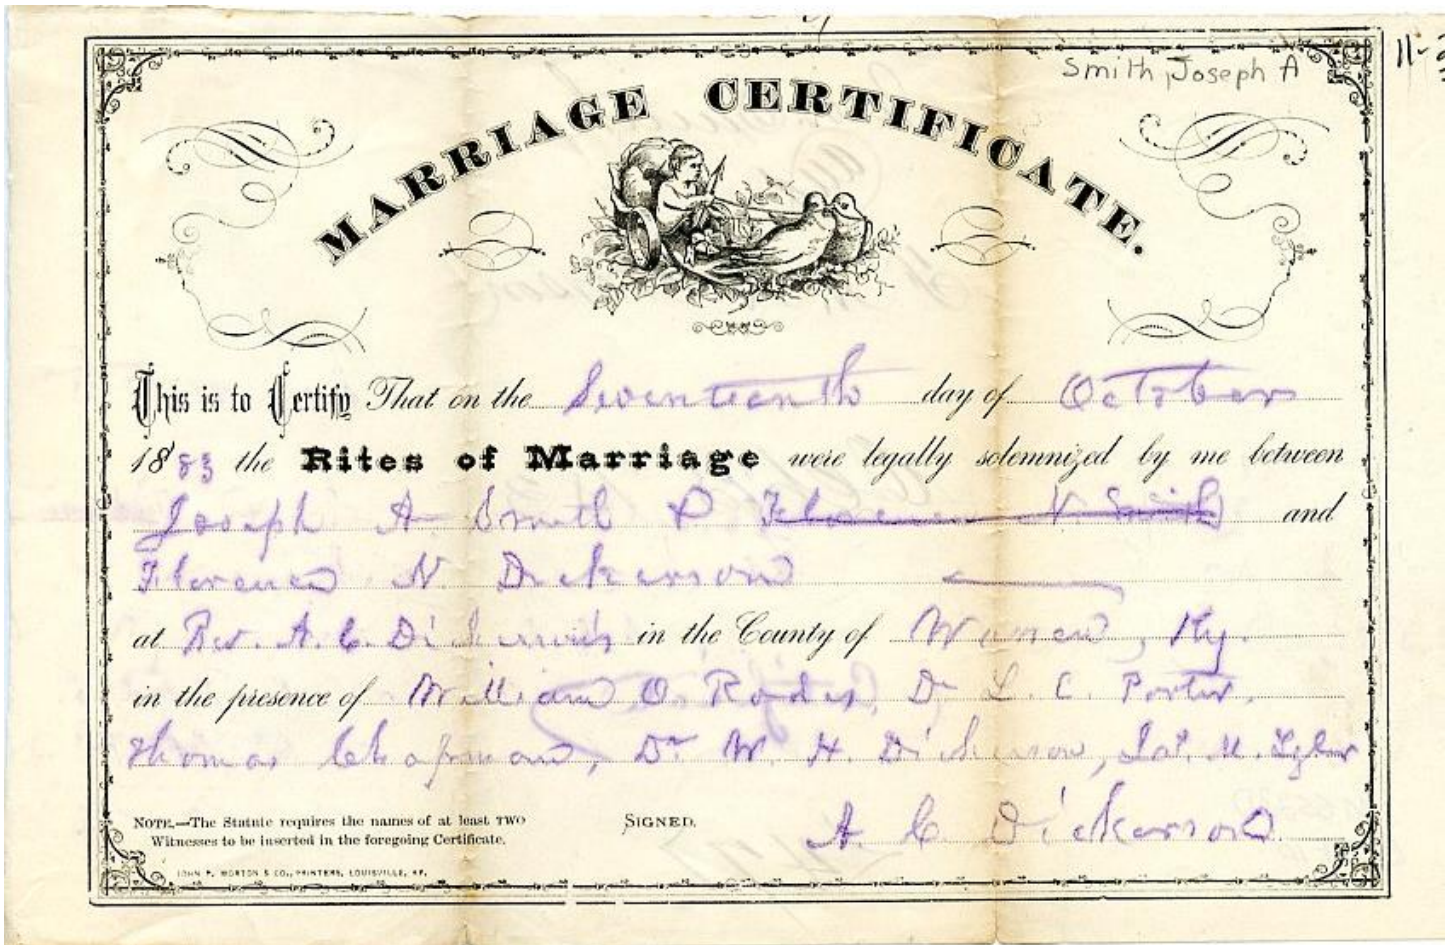 Smith, Joseph A
11-2
MARRIAGE CERTIFICATE.
This is to Certify That on the Seventeenth day of October
1883 the Rites of Marriage were legally solemnized by me between
Joseph A Smith & Florence N. Smith and
Florence N Dickerson
at Rev. A. C. Dickerson's in the County of Warren, Ky.
in the presence of William O. Rodes, Dr L. C. Porter,
Thomas Chapman, Dr W. H. Dickerson, M.
NOTE.—The Statute requires the names of at least TWO
Witnesses to be inserted in the foregoing Certificate.
SIGNED,
A C Dickerson
JOHN P. MORTON & CO., PRINTERS, LOUISVILLE, KY.